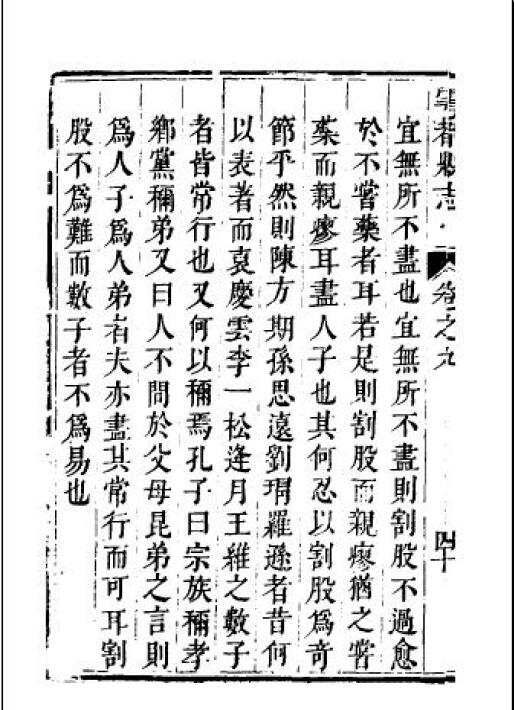 縣志
卷之九
四十
宜無所不盡也宜無所不盡則割股不過愈
於不嘗藥者耳若是則割股而親瘳猶之嘗
藥而親瘳耳盡人子也其何忍以割股為奇
節乎然則陳方期孫思遠劉珝羅遜者昔何
以表著而袁慶雲李一松逢月王維之數子
者皆常行也又何以稱焉孔子曰宗族稱孝
鄉黨稱弟又曰人不間於父母昆弟之言則
為人子為人弟者夫亦盡其常行而可耳割
股不為難而數子者不為易也